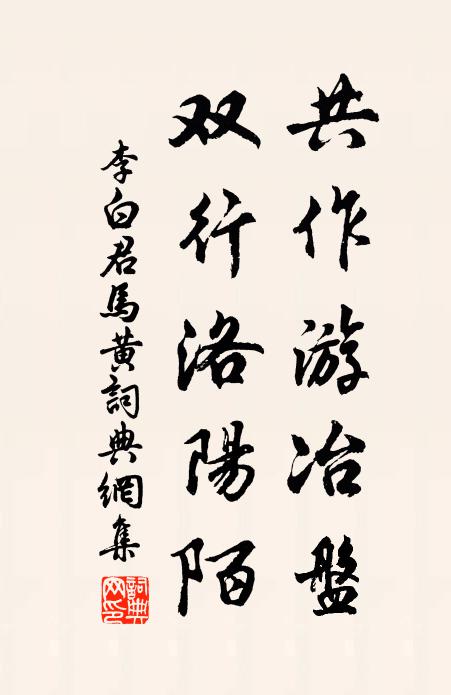 共作游冶盤
双行洛陽陌
李白君馬黄詞典網集
詞典
网印